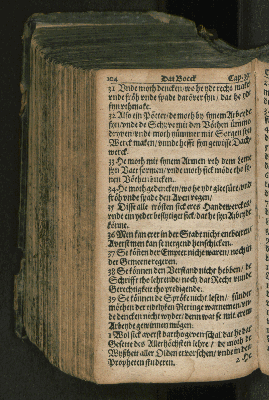 104 Dat Boeck Cap. 39.
31 Unde moth dencken/ wo he ydt recht make/
vnde fröh vnde spade daröver syn/ dat he ydt
syn vthmake.
32 Also ein Pötter/ de moth by synem Arbeyde
syn/ vnde de Schyve mit den Vöthen ümme
dreyen/ vnde moth nümmer mit Sorgen syn
Werck maken/ vnnde hefft syn gewisse Dach-
werck.
33 He moth mit synem Armen vth dem Leme
syn Vatt formen/ vnde moth sick möde tho sy-
nen Vöthen bücken.
34 He moth gedencken/ wo he ydt glesüre/ vnde
fröh vnde spade den Aven vegen.
35 Disse alle trösten sick eres Handwerckes/
vnde ein yeder beflytiget sick/ dat he syn Arbeydt
könne.
36 Men kan erer in der Stadt nicht entberen/
Averst men kan se nergend henschicken.
37 Se könen der Empter nicht waren/ noch in
der Gemeene regeren.
38 Se können den Verstand nicht hebben/ de
Schrifft tho lehrende/ noch dat Recht vnde
Gerechticheit tho predigende.
39 Se können de Spröke nicht lesen/ sünder
möthen der tidtlyken Neringe warnemen/ vn-
de dencken nicht wyder/ denn wat se mit erem
Arbeyde gewinnen mögen.
1 Wol sick averst dartho geven schal/ dat he dat
Gesette des Allerhöchsten lehre/ de moth de
Wyßheit aller Olden erforschen/ vnde in den
Propheten studeren. 2 He